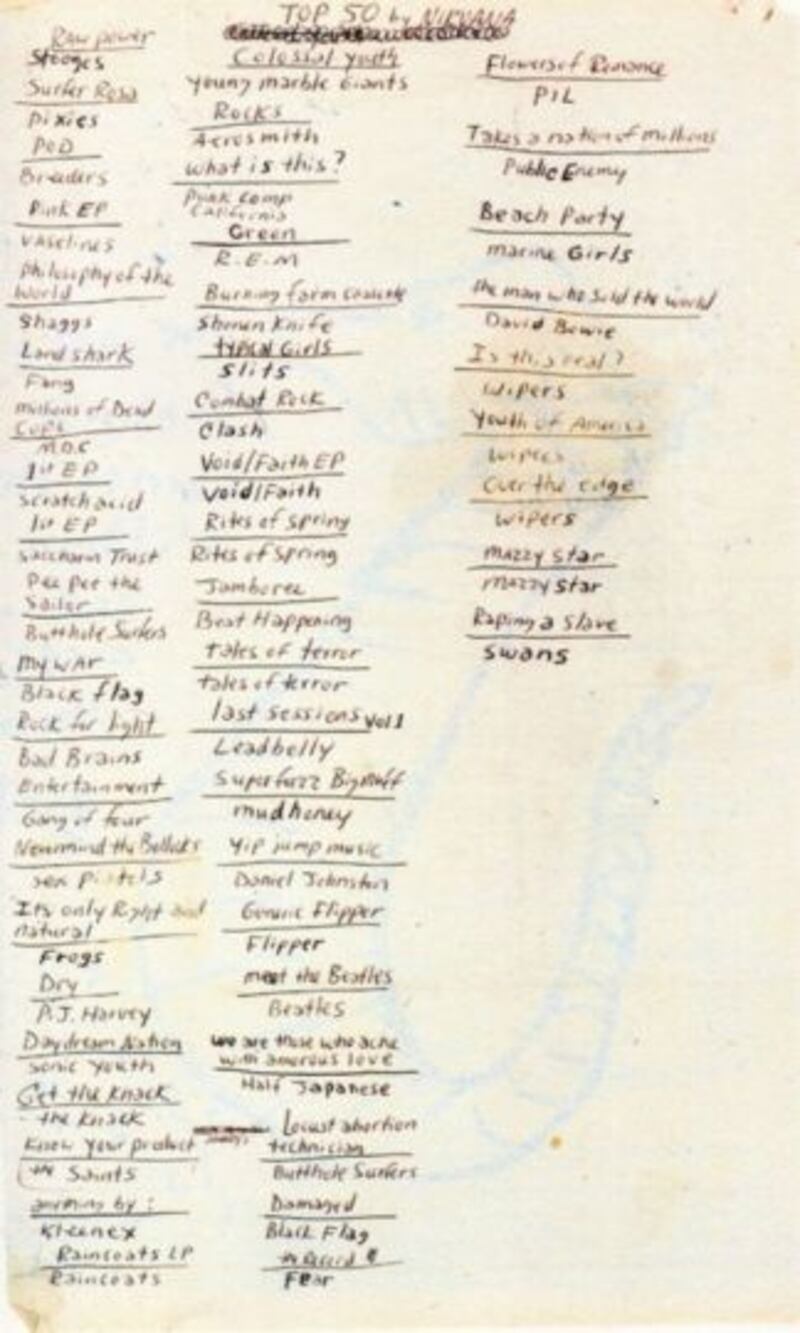 TOP 50 by NIRVANA
Raw power
Stooges
Surfer Rosa
Pixies
POD
Breeders
Pink EP
Vaselines
Philosophy of the
World
Shaggs
Land shark
Fang
millions of Dead
Cops
M.D.C
1st EP
Scratch acid
1st EP
Saccharin Trust
Pee Pee the
Sailor
Butthole Surfers
My WAR
Black flag
Rock for light
Bad Brains
Entertainment
Gang of four
Nevermind the Bollocks
sex pistols
Its only Right and
natural
Frogs
Dry
P.J. Harvey
Daydream Nation
Sonic Youth
Get the Knack
the Knack
Know Your product
the Saints
anything by:
Kleenex
Raincoats LP
Raincoats
Colossal youth
Young marble Giants
Rocks
Aerosmith
What is this?
Punk Comp
California
Green
R.E.M
Burning farm
Shonen Knife
Typical Girls
Slits
Combat Rock
Clash
Void/Faith EP
Void/Faith
Rites of Spring
Rites of Spring
Jamboree
Beat Happening
tales of terror
tales of terror
last sessions Vol 1
Leadbelly
Superfuzz Bigmuff
mudhoney
Yip jump music
Daniel Johnston
Generic Flipper
Flipper
meet the Beatles
Beatles
we are those who ache
with amorous love
Half Japanese
Locust abortion
technician
Butthole Surfers
Damaged
Black Flag
the Record
Fear
Flowers of Romance
PIL
Takes a nation of millions
Public Enemy
Beach Party
marine Girls
the man who sold the world
David Bowie
Is this real?
Wipers
Youth of America
Wipers
Over the edge
Wipers
Mazzy Star
Mazzy Star
Raping a Slave
Swans